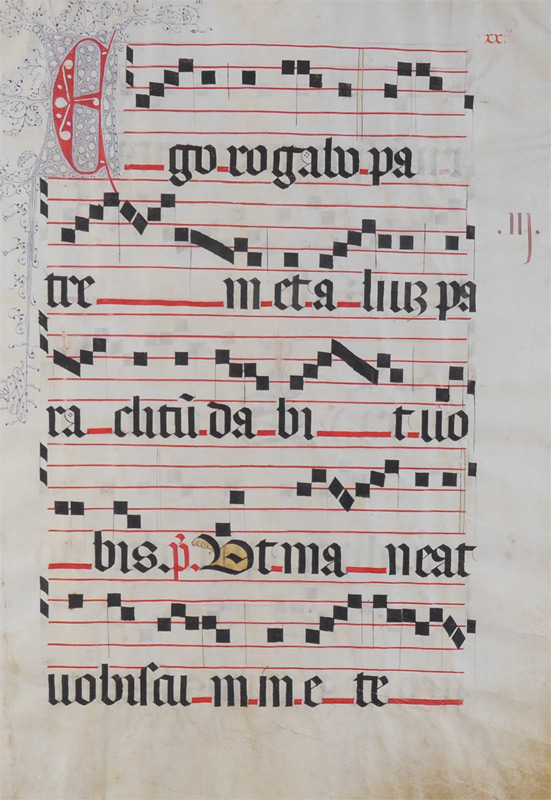 xx
Ego rogabo pa
.iij.
tre m et aliuꝫ pa
ra clitū da bi t uo
bis. p̄. Ut ma neat
uobiscū in in e te